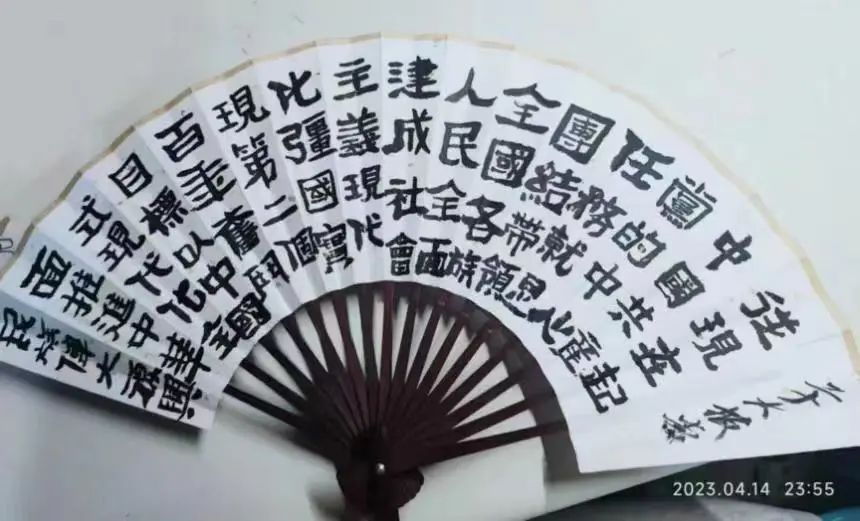 從現在起
中國共產
黨的中心
任務就是
團結帶領
全國各族
人民全面
建成社會
主義現代
化彊國實
現第二個
百年奮鬥
目標以中國
式現代化全
面推進中華
民族偉大復興
大振
2023.04.14 23:55